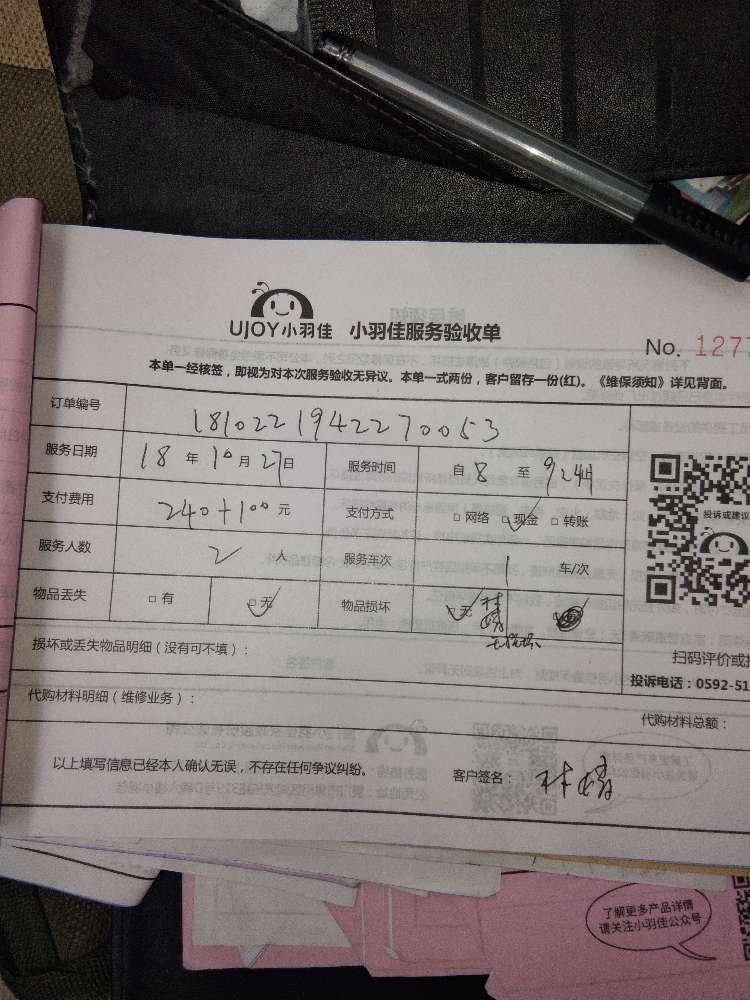 UJOY小羽佳 小羽佳服务验收单
No. 1277
本单一经核签，即视为对本次服务验收无异议。本单一式两份，客户留存一份(红)。《维保须知》详见背面。
订单编号 1810221942270053
服务日期 18 年 10 月 27 日 服务时间 自 8 至
支付费用 240+100 元 支付方式 □ 网络 □ 现金 □ 转账
服务人数 2 人 服务车次 1 车/次
物品丢失 □ 有 □ 无 物品损坏 □ 无
无损坏
损坏或丢失物品明细（没有可不填）：
代购材料明细（维修业务）：
代购材料总额：
以上填写信息已经本人确认无误，不存在任何争议纠纷。 客户签名：
投诉或建议
扫码评价或
投诉电话：0592-51
了解更多产品详情
请关注小羽佳公众号